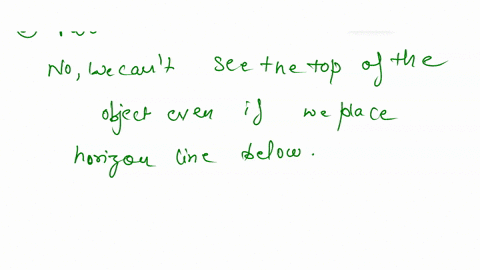 No, we can't see the top of the
object even if we place
horizon line below.